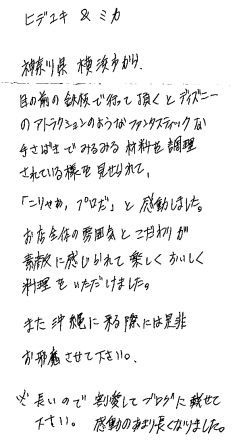 ヒデユキ & ミカ
神奈川県 横浜市から、
目の前の鉄板で行って頂くとディズニー
のアトラクションのようなファンタスティックな
手さばきでみるみる材料を調理
されている様を見せられて、
「こりゃあ、プロだ」と感動しました。
お店全体の雰囲気とこだわりが
素敵に感じられて楽しくおいしく
料理をいただけました。
また沖縄に来る際には是非
お邪魔させて下さい。
※長いので割愛してブログに載せて
下さい。感動のあまり長くなりました。